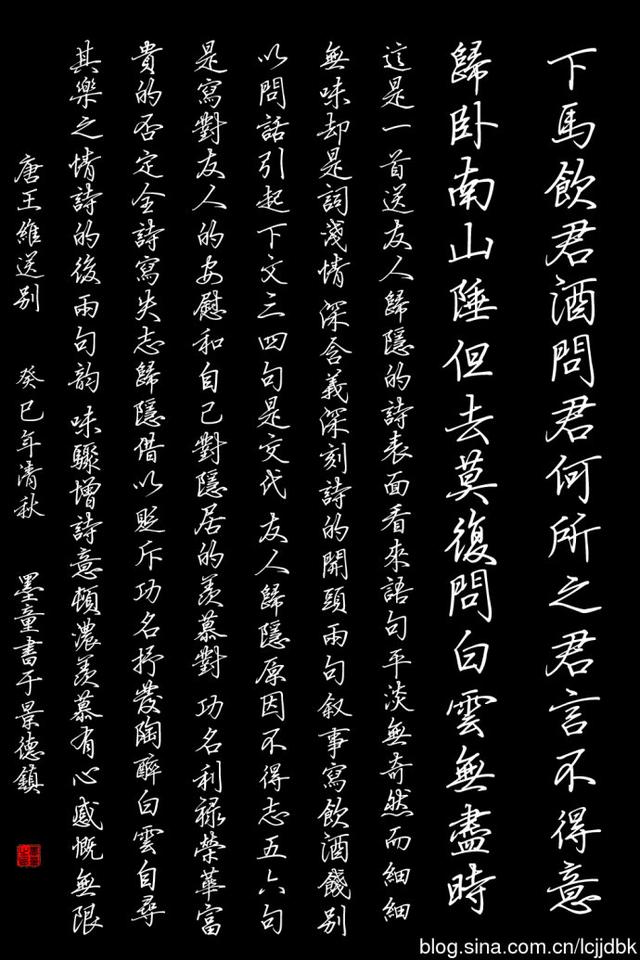 下馬飲君酒問君何所之君言不得意
歸卧南山陲但去莫復問白雲無盡時
這是一首送友人歸隱的詩表面看來語句平淡無奇然而細細
無味却是詞淺情深含義深刻詩的開頭兩句叙事寫飲酒餞别
以問話引起下文三四句是交代友人歸隱原因不得志五六句
是寫對友人的安慰和自己對隱居的羡慕對功名利禄榮華富
貴的否定全詩寫失志歸隱借以貶斥功名抒發陶醉白雲自尋
其樂之情詩的後兩句韵味驟增詩意頓濃羡慕有心感慨無限
唐王維送别 癸巳年清秋 墨童書于景德鎮
blog.sina.com.cn/lcjjdbk